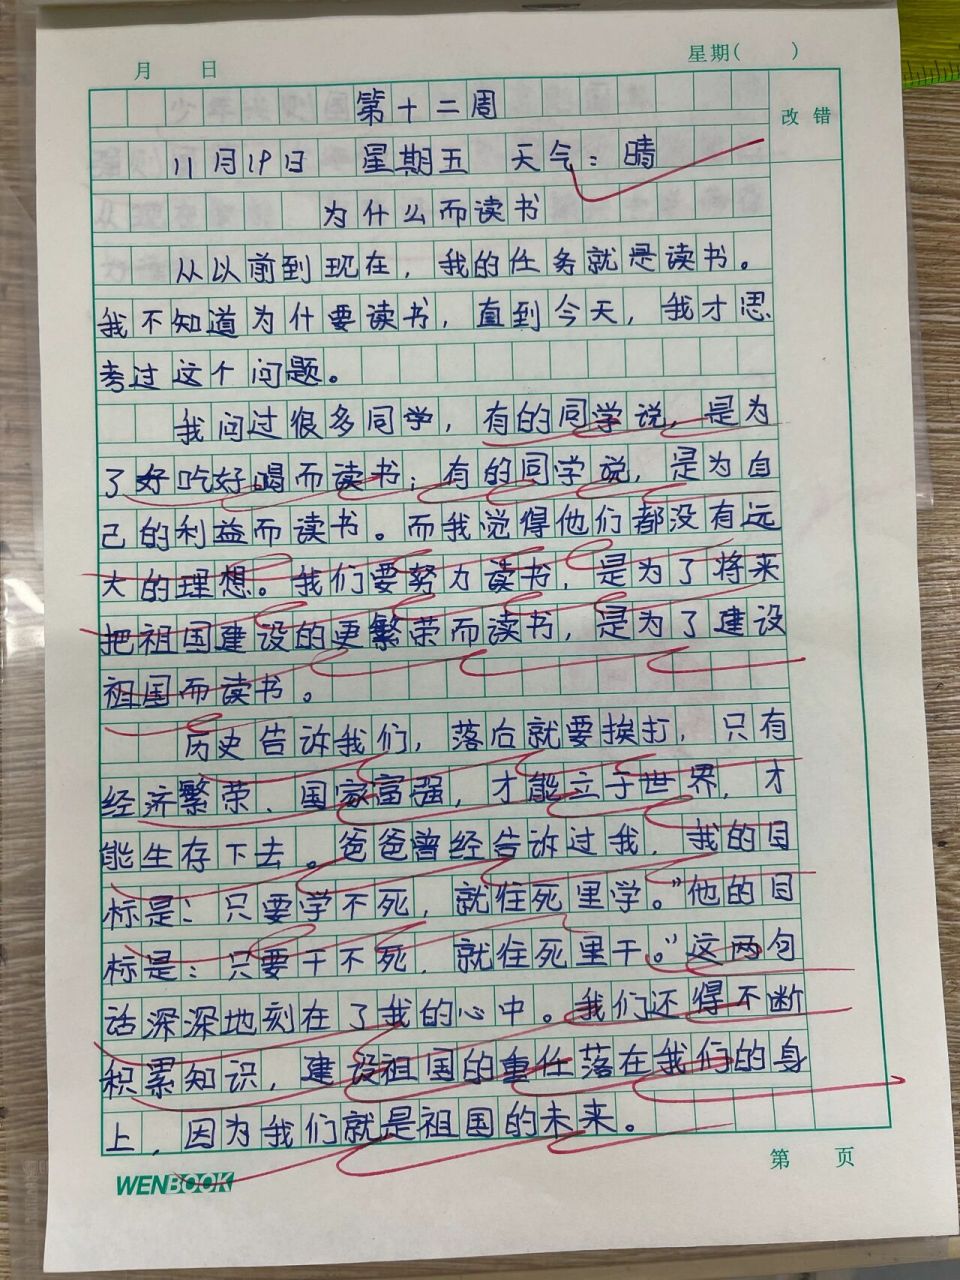 月 日 星期( )
改 错
第十二周
11月19日 星期五 天气：晴
为什么而读书
从以前到现在，我的任务就是读书。
我不知道为什要读书，直到今天，我才思
考过这个问题。
我问过很多同学，有的同学说，是为
了好吃好喝而读书；有的同学说，是为自
己的利益而读书。而我觉得他们都没有远
大的理想。我们要努力读书，是为了将来
把祖国建设的更繁荣而读书，是为了建设
祖国而读书。
历史告诉我们，落后就要挨打，只有
经济繁荣、国家富强，才能立于世界，才
能生存下去。爸爸曾经告诉过我，我的目
标是：只要学不死，就往死里学。”他的目
标是：只要干不死，就往死里干。”这两句
话深深地刻在了我的心中。我们还得不断
积累知识，建设祖国的重任落在我们的身
上，因为我们就是祖国的未来。
WENBOOK
第 页